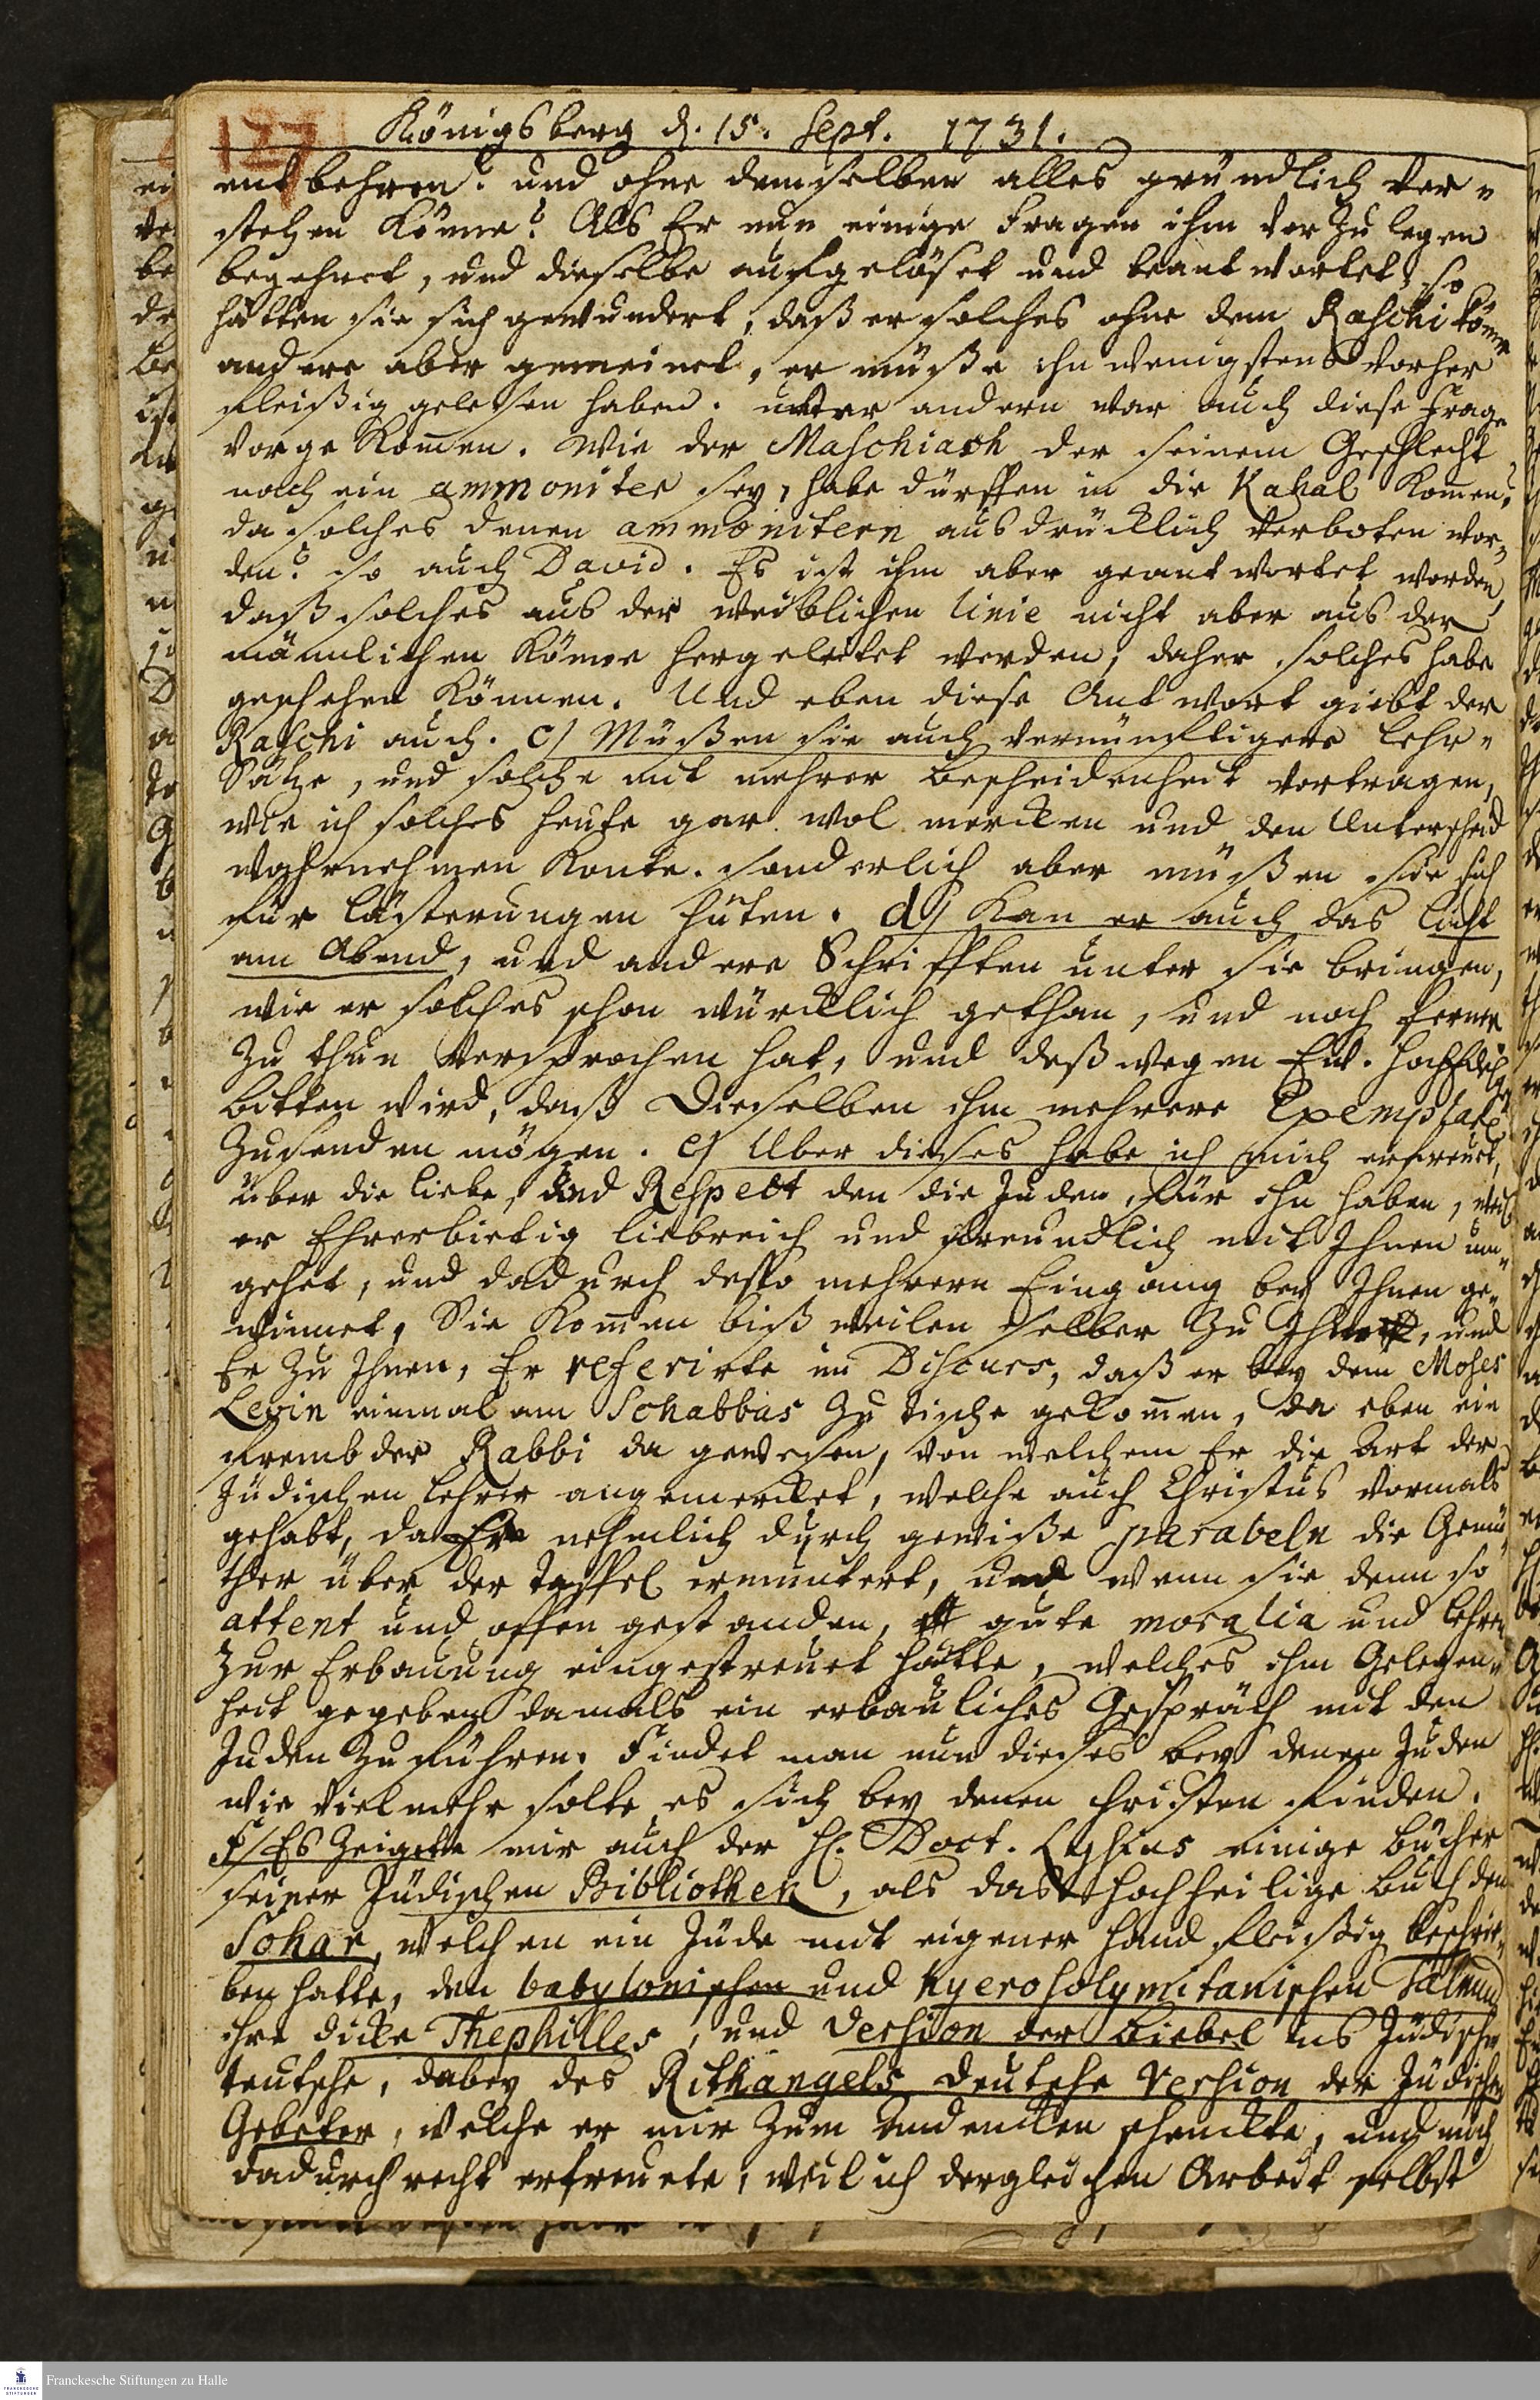 127
Königsberg d. 15. Sept. 1731.
entbehren? und ohne demselben alles gründlich ver-
stehen könne? Als Er nun einige Fragen ihm vor zu legen
begehret, und dieselbe aufgelöset und beantwortet, so
hätten sie sich gewundert, daß er solches ohne dem Raschi könne
andere aber gemeinet, er müße ihn wenigstens vorher
fleißig gelesen haben. unter andern war auch diese Frage
vorgekomen. Wie der Maschiach der seinem Geschlecht
nach ein ammoniter sey, habe dürffen in die Kahal komen,
da solches denen ammonitern ausdrücklich verboten wor-
den? so auch David. Es ist ihm aber geantwortet worden,
daß solches aus der weiblichen Linie nicht aber aus der
männlichen könne hergeleitet werden, daher solches habe
geschehen können. Und eben diese Antwort giebt der
Raschi auch. c) Müßen sie auch vernünfftigere Lehr-
Sätze, und solche mit mehrer Bescheidenheit vortragen,
wie ich solches heute gar wol mercken und den Unterscheid
wahrnehmen konte. sonderlich aber müßen sie sich
für Lästerungen hüten. d) Kan er auch das Licht
am Abend, und andere Schrifften unter sie bringen,
wie er solches schon würcklich gethan, und noch ferner
zu thun versprochen hat, und deßwegen Ew.
bitten wird, daß Dieselben ihm mehrere Exemplare
zusenden mögen. e) Uber dieses habe ich mich erfreuet,
über die Liebe, und Respect den die Juden für ihn haben, weil
er Ehrerbietig liebreich und freundlich mit Ihnen um-
gehet, und dadurch desto mehrern Eingang bey Ihnen ge-
winnet, Sie komen bißweilen selber zu Ihm, und
Er zu Ihnen, Er referirte im Discurs, daß er bey dem Moses
Levin einmal am Schabbas zu tische gekomen, da eben ein
frembder Rabbi da gewesen, von welchem Er die Art der
Jüdischen Lehrer angemercket, welche auch Christus vormals
gehabt, da Er nehmlich durch gewiße parabeln die Gemü-
ther über der Taffel ermuntert, und wenn sie denn so
attent und offen gestanden, gute moralia und Lehren
zur Erbauung eingestreuet hätte, welches ihm Gelegen-
heit gegeben damals ein erbauliches Gespräch mit den
Juden zu führen. Findet man nun dieses bey denen Juden
wie vielmehr solte es sich bey denen Christen finden.
f) Es zeigete mir auch der H. Doct. Lysius einige Bücher
seiner Jüdischen Bibliothek, als das hochheilige Buch den
Sohar, welchen ein Jude mit eigener Hand fleißig beschrie-
ben hatte, den babylonischen und hyerosolymitanischen Talmud
ihre dicke Thephilles, und Version der Biebel ins Jüdisch
teutsche, dabey des Rithangels deutsche Version der Jüdischen
Gebeter, welche er mir zum Andencken schenckte, und mich
dadurch recht erfreuete, weil ich dergleichen Arbeit selbst
Franckesche Stiftungen zu Halle